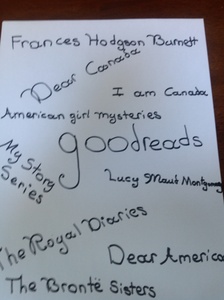 Frances Hodgson Burnett
Dear Canada
I am Canada
American girl mysteries
goodreads
My Story
Series
Lucy Maud Montgomery
The Royal Diaries
Dear America
The Brontë Sisters